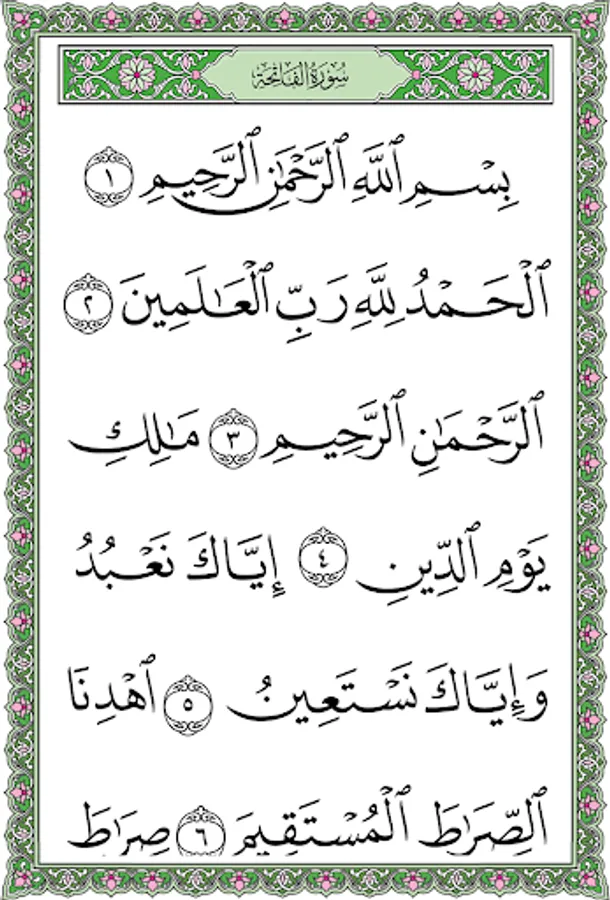 سُورَةُ الفَاتِحَةِ
بِسْمِ ٱللَّهِ ٱلرَّحْمَٰنِ ٱلرَّحِيمِ ١
ٱلْحَمْدُ لِلَّهِ رَبِّ ٱلْعَـٰلَمِينَ ٢
ٱلرَّحْمَٰنِ ٱلرَّحِيمِ ٣ مَـٰلِكِ
يَوْمِ ٱلدِّينِ ٤ إِيَّاكَ نَعْبُدُ
وَإِيَّاكَ نَسْتَعِينُ ٥ ٱهْدِنَا
ٱلصِّرَٰطَ ٱلْمُسْتَقِيمَ ٦ صِرَٰطَ